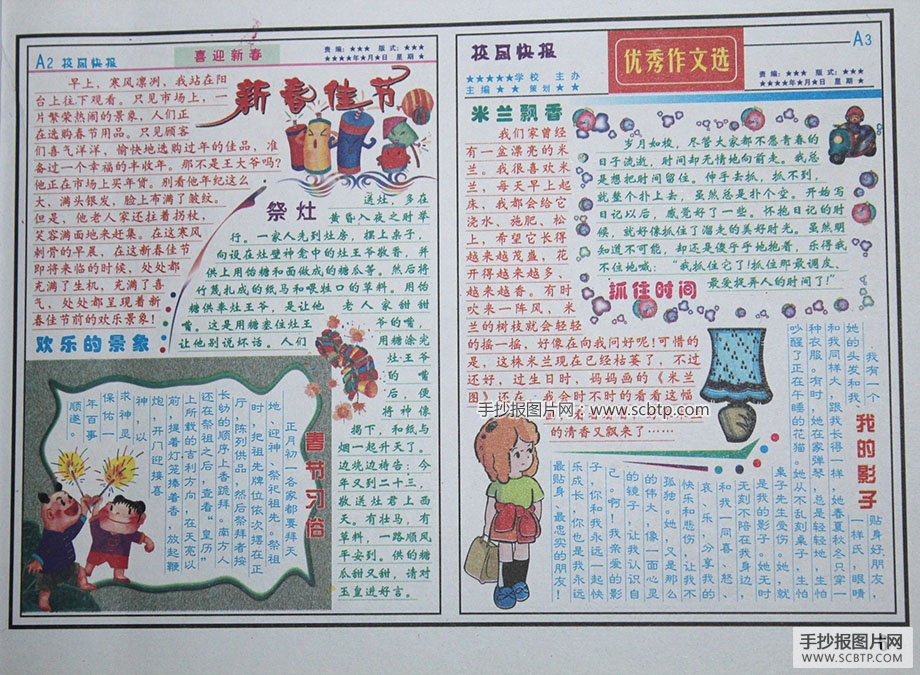 A2 校园快报
喜迎新春
责 编：★★★ 版 式：★★★
★★★★年★月★日 星 期 ★
新春佳节
早上，寒风凛冽，我站在阳
台上往下观看。只见市场上，一
片繁荣热闹的景象，人们正
在选购春节用品。只见顾客
们喜气洋洋，愉快地选购过年的佳品，准
备过一个幸福的丰收年。那不是王大爷吗？
他正在市场上买年货。别看他年纪这么
大，满头银发，脸上布满了皱纹。
但是，他老人家还拄着拐杖，
笑容满面地来赶集。在这寒风
刺骨的早晨，在这新春佳节
即将来临的时候，处处都
充满了生机，充满了喜
气，处处都呈现着新
春佳节前的欢乐景象！
欢乐的景象
祭灶
送灶，多在
黄昏入夜之时举
行。一家人先到灶房，摆上桌子，
向设在灶壁神龛中的灶王爷敬香，并
供上用饴糖和面做成的糖瓜等。然后将
竹篾扎成的纸马和喂牲口的草料。用饴
糖供奉灶王爷，是让他 老人家甜甜
嘴。这是用糖塞住灶王 爷的嘴，
让他别说坏话。人们 用糖涂完
灶王爷
的嘴
后，便
将神像
揭下，和纸与
烟一起升天了。
边烧边祷告：今
年又到二十三，
敬送灶君上西
天。有壮马，有
草料，一路顺风
平安到。供的糖
瓜甜又甜，请对
玉皇进好言。
春节习俗
正月初一各家都要拜天
地、迎神、祭祀祖先。祭祖
时，把祖先牌位依次摆在正
厅，陈列供品，然后祭拜者按
长幼的顺序上香跪拜。南方人
还在祭祖之后，查看“皇历”
上所载的吉利方向，在天亮以
前，提着灯笼捧着香，放起鞭
炮，开门迎接喜
神，以
求神灵
保佑一
年百事
顺遂。
校园快报
★★★★★学校 主办
主编 ★★ 策划 ★★
优秀作文选
A3
责 编：★★★ 版 式：★★★
★★★★年★月★日 星 期 ★
米兰飘香
我们家曾经
有一盆漂亮的米
兰。我很喜欢米
兰，每天早上起
床，我都会给它
浇水、施肥、松
土，希望它长得
越来越茂盛，花
开得越来越多，
越来越香。有时
吹来一阵风，米
兰的树枝就会轻轻
的摇一摇，好像在向我问好呢！可惜的
是，这株米兰现在已经枯萎了，不过
还好，过生日时，妈妈画的《米兰
图》还在，我会时不时的看看这幅
的清香又飘来了……
岁月如梭，尽管大家都不愿青春的
日子流逝，时间却无情地向前走。我总
是想把时间留住。伸手去抓，抓不到，
就整个扑上去，虽然总是扑个空。开始写
日记以后，感觉好了一些。怀抱日记的时
候，就好像抓住了溜走的美好时光。虽然明
知道不可能，却还是傻乎乎地抱着，乐得我
不住地喊：“我抓住它了！抓住那最调皮、
最爱捉弄人的时间了！”
抓住时间
我的影子
我有一个
贴身好朋友，
她的头发和我
一样长，眼睛
和我同样大，跟我长得一样，她春夏秋冬只穿一
种衣服。有时，她在家弹琴，总是轻轻地，生怕
吵醒了正在午睡的花猫。她从不乱刻桌子，生怕
桌子先生受伤。她，就
是我的影子。她无时
无刻不陪在我身边，
和我一同喜、怒、
哀、乐，分享我的
快乐和悲伤，让我不
孤独。她，又是那么
的伟大，像一面心灵
的镜子，让我认识自
己。啊！我亲爱的影
子，你和我永远一起快
乐成长，你也是我永远
最贴身、最忠实的朋友！
手抄报图片网 www.scbtp.com
手抄报图片网
WWW.SCBTP.COM